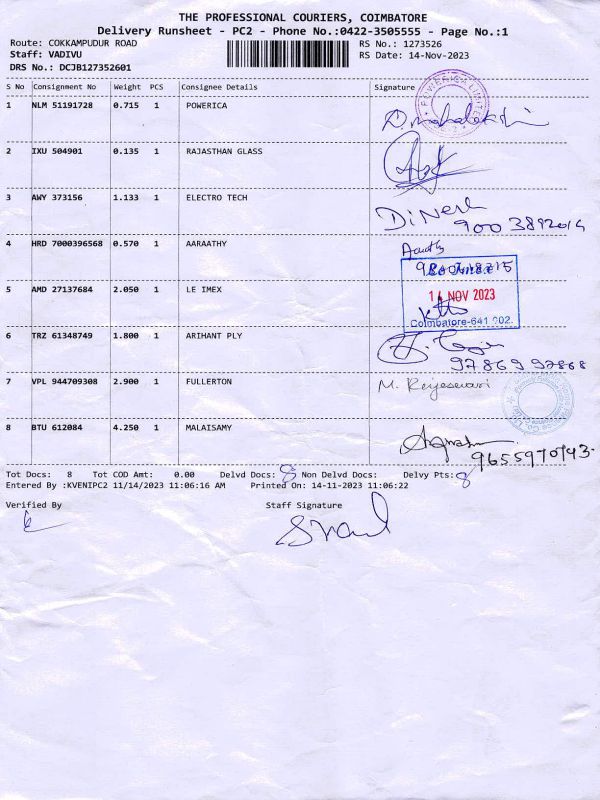 THE PROFESSIONAL COURIERS, COIMBATORE
Delivery Runsheet - PC2 - Phone No.:0422-3505555 - Page No.:1
Route: COKKAMPUDUR ROAD RS No.: 1273526
Staff: VADIVU RS Date: 14-Nov-2023
DRS No.: DCJB127352601
S No Consignment No Weight PCS Consignee Details Signature
1 NLM 51191728 0.715 1 POWERICA
POWERICA LIMITED
2 IXU 504901 0.135 1 RAJASTHAN GLASS
3 AWY 373156 1.133 1 ELECTRO TECH
Dinesh
4 HRD 7000396568 0.570 1 AARAATHY
14 NOV 2023
5 AMD 27137684 2.050 1 LE IMEX
Coimbatore-641 002.
6 TRZ 61348749 1.800 1 ARIHANT PLY
97869 97868
7 VPL 944709308 2.900 1 FULLERTON
8 BTU 612084 4.250 1 MALAISAMY
Tot Docs: 8 Tot COD Amt: 0.00 Delvd Docs: 8 Non Delvd Docs: Delvy Pts: 8
Entered By :KVENIPC2 11/14/2023 11:06:16 AM Printed On: 14-11-2023 11:06:22
Verified By Staff Signature